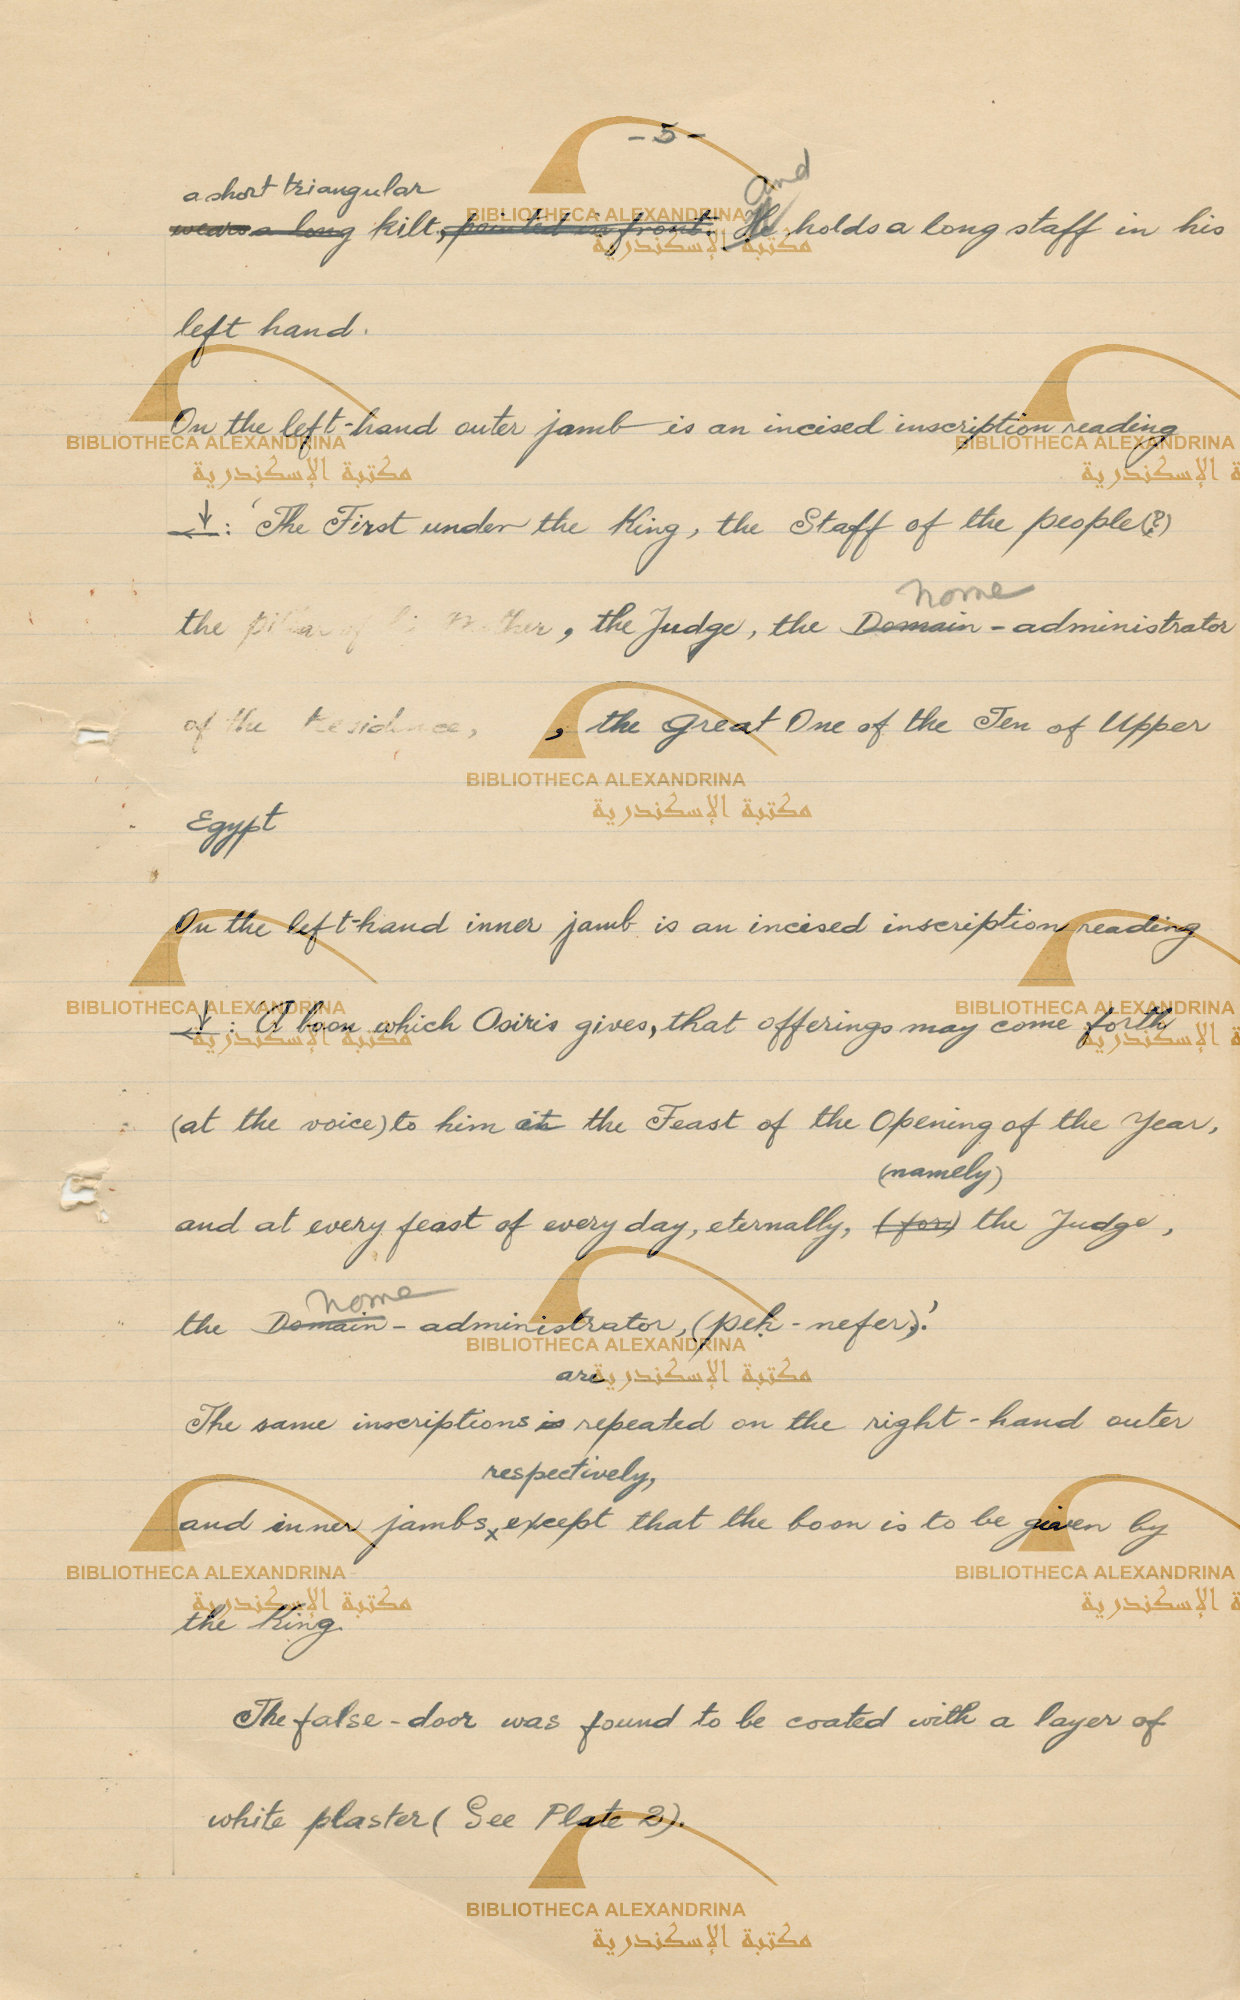 - 5 -
a short triangular and
wears a long kilt, pointed in front. He holds a long staff in his
left hand.
On the left-hand outer jamb is an incised inscription reading
: 'The First under the King, the Staff of the people(?)
nome
the pillar of his Mother, the Judge, the Domain - administrator
of the Residence, , the Great One of the Ten of Upper
Egypt
On the left-hand inner jamb is an incised inscription reading
: 'A boon which Osiris gives, that offerings may come forth
(at the voice) to him at the Feast of the Opening of the Year,
(namely)
and at every feast of every day, eternally, (for) the Judge,
nome
the Domain - administrator, (peh - nefer).'
are
The same inscriptions is repeated on the right-hand outer
respectively,
and inner jambs x except that the boon is to be given by
the King.
The false-door was found to be coated with a layer of
white plaster ( See Plate 2).
BIBLIOTHECA ALEXANDRINA
مكتبة الإسكندرية